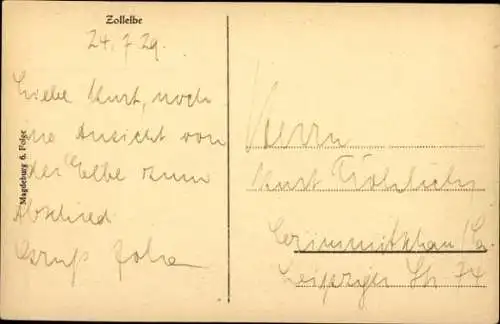 Zollelbe
24.7.29.
Liebe Kurt, noch
ine Ansicht von
der Elbe zum
Abschied
Gruß
Magdeburg 6. Folge
Herrn
Kurt Fröhlich,
Crimmitschau/Sa.
Leipziger Str. 74